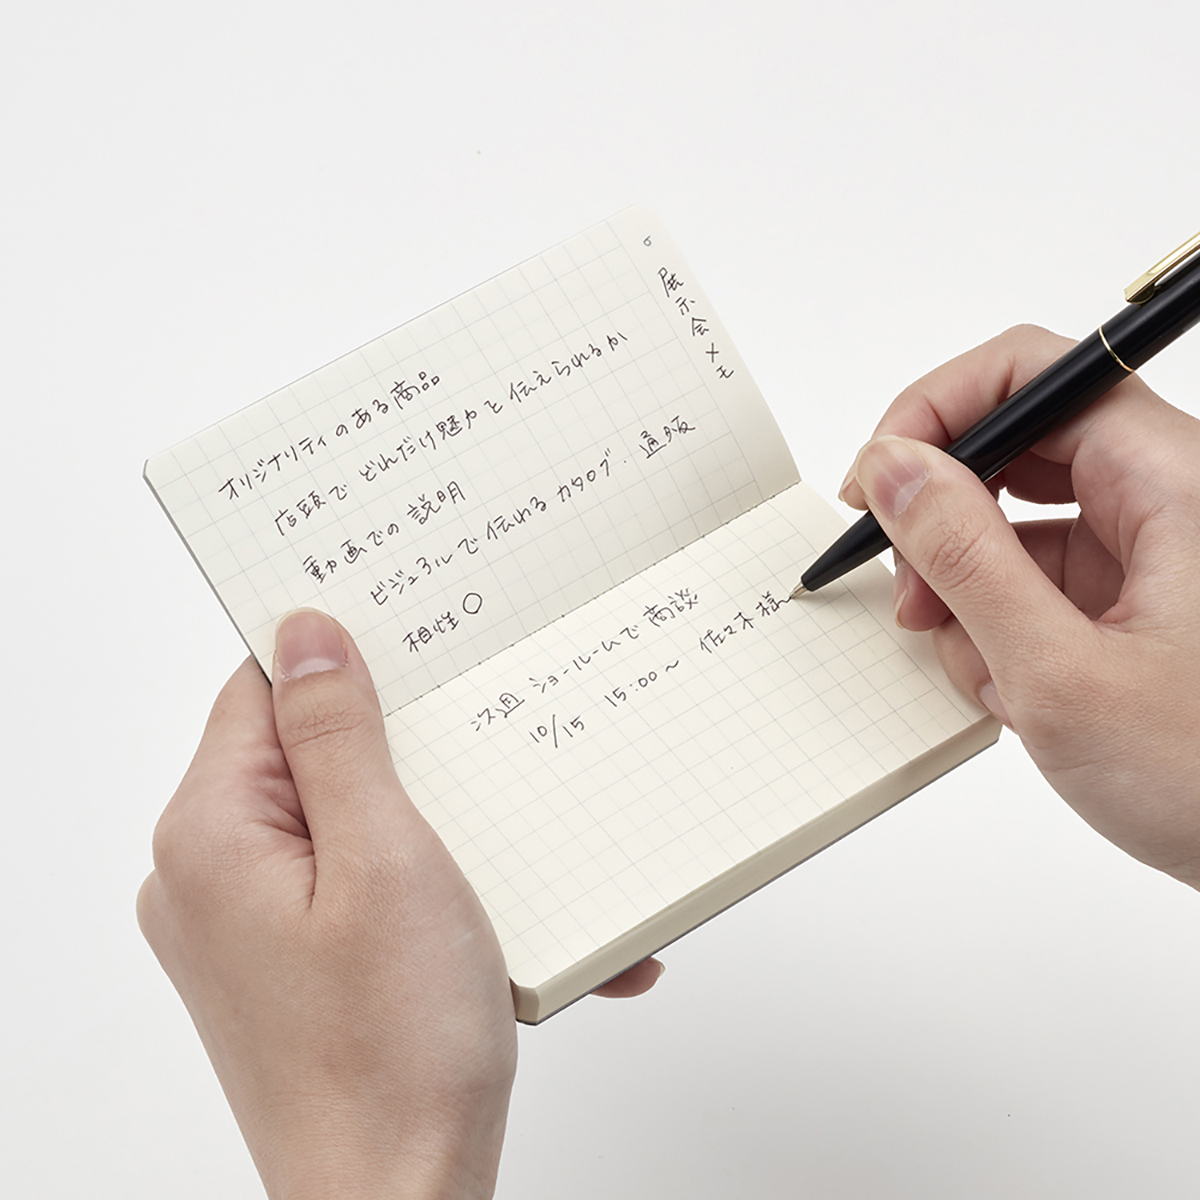 展示会メモ
オリジナリティのある商品
店頭でどれだけ魅力と伝えられるか
動画での説明
ビジュアルで伝わるカタログ・通販
相性○
次週 ショールームで商談
10/15 15:00〜 佐々木様